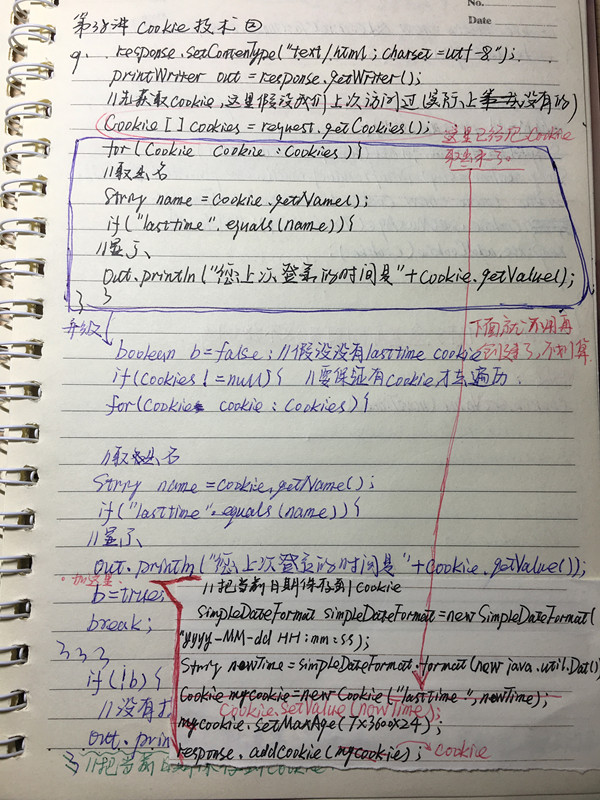 No.
Date
第38讲 Cookie 技术 ④
9. response.setContentType("text/html; charset=utf-8");
printWriter out = response.getWriter();
//先获取cookie,这里假设我们上次访问过(实际上 没有的)
Cookie[] cookies = request.getCookies();
这里已经把 Cookie
取出来了。
for(Cookie cookie : Cookies){
//取出名
String name = cookie.getName();
if("lasttime".equals(name)){
//显示
Out.println("您上次登录的时间是"+Cookie.getValue();
} }
升级
下面就不用再
创建了,不划算
boolean b=false; //假设没有lasttime cookie
if(Cookies!=null){ //要保证有cookie才去遍历
for(Cookie cookie : Cookies){
//取出名
String name = cookie.getName();
if("lasttime".equals(name)){
//显示
Out.println("您上次登录的时间是"+Cookie.getValue());
加这里
b=true;
break;
} } }
if(!b){
//没有
out.prin
//把当前日期保存到Cookie
SimpleDateFormat simpleDateFormat=new SimpleDateFormat(
"yyyy-MM-dd HH:mm:ss);
String nowTime=simpleDateFormat.format(new java.util.Dat()
Cookie mycookie=new Cookie("lasttime", nowTime);
Cookie.SetValue(nowTime);
mycookie.setMaxAge(7x3600x24);
response.addCookie(mycookies); cookie
} //把当前 Cookie